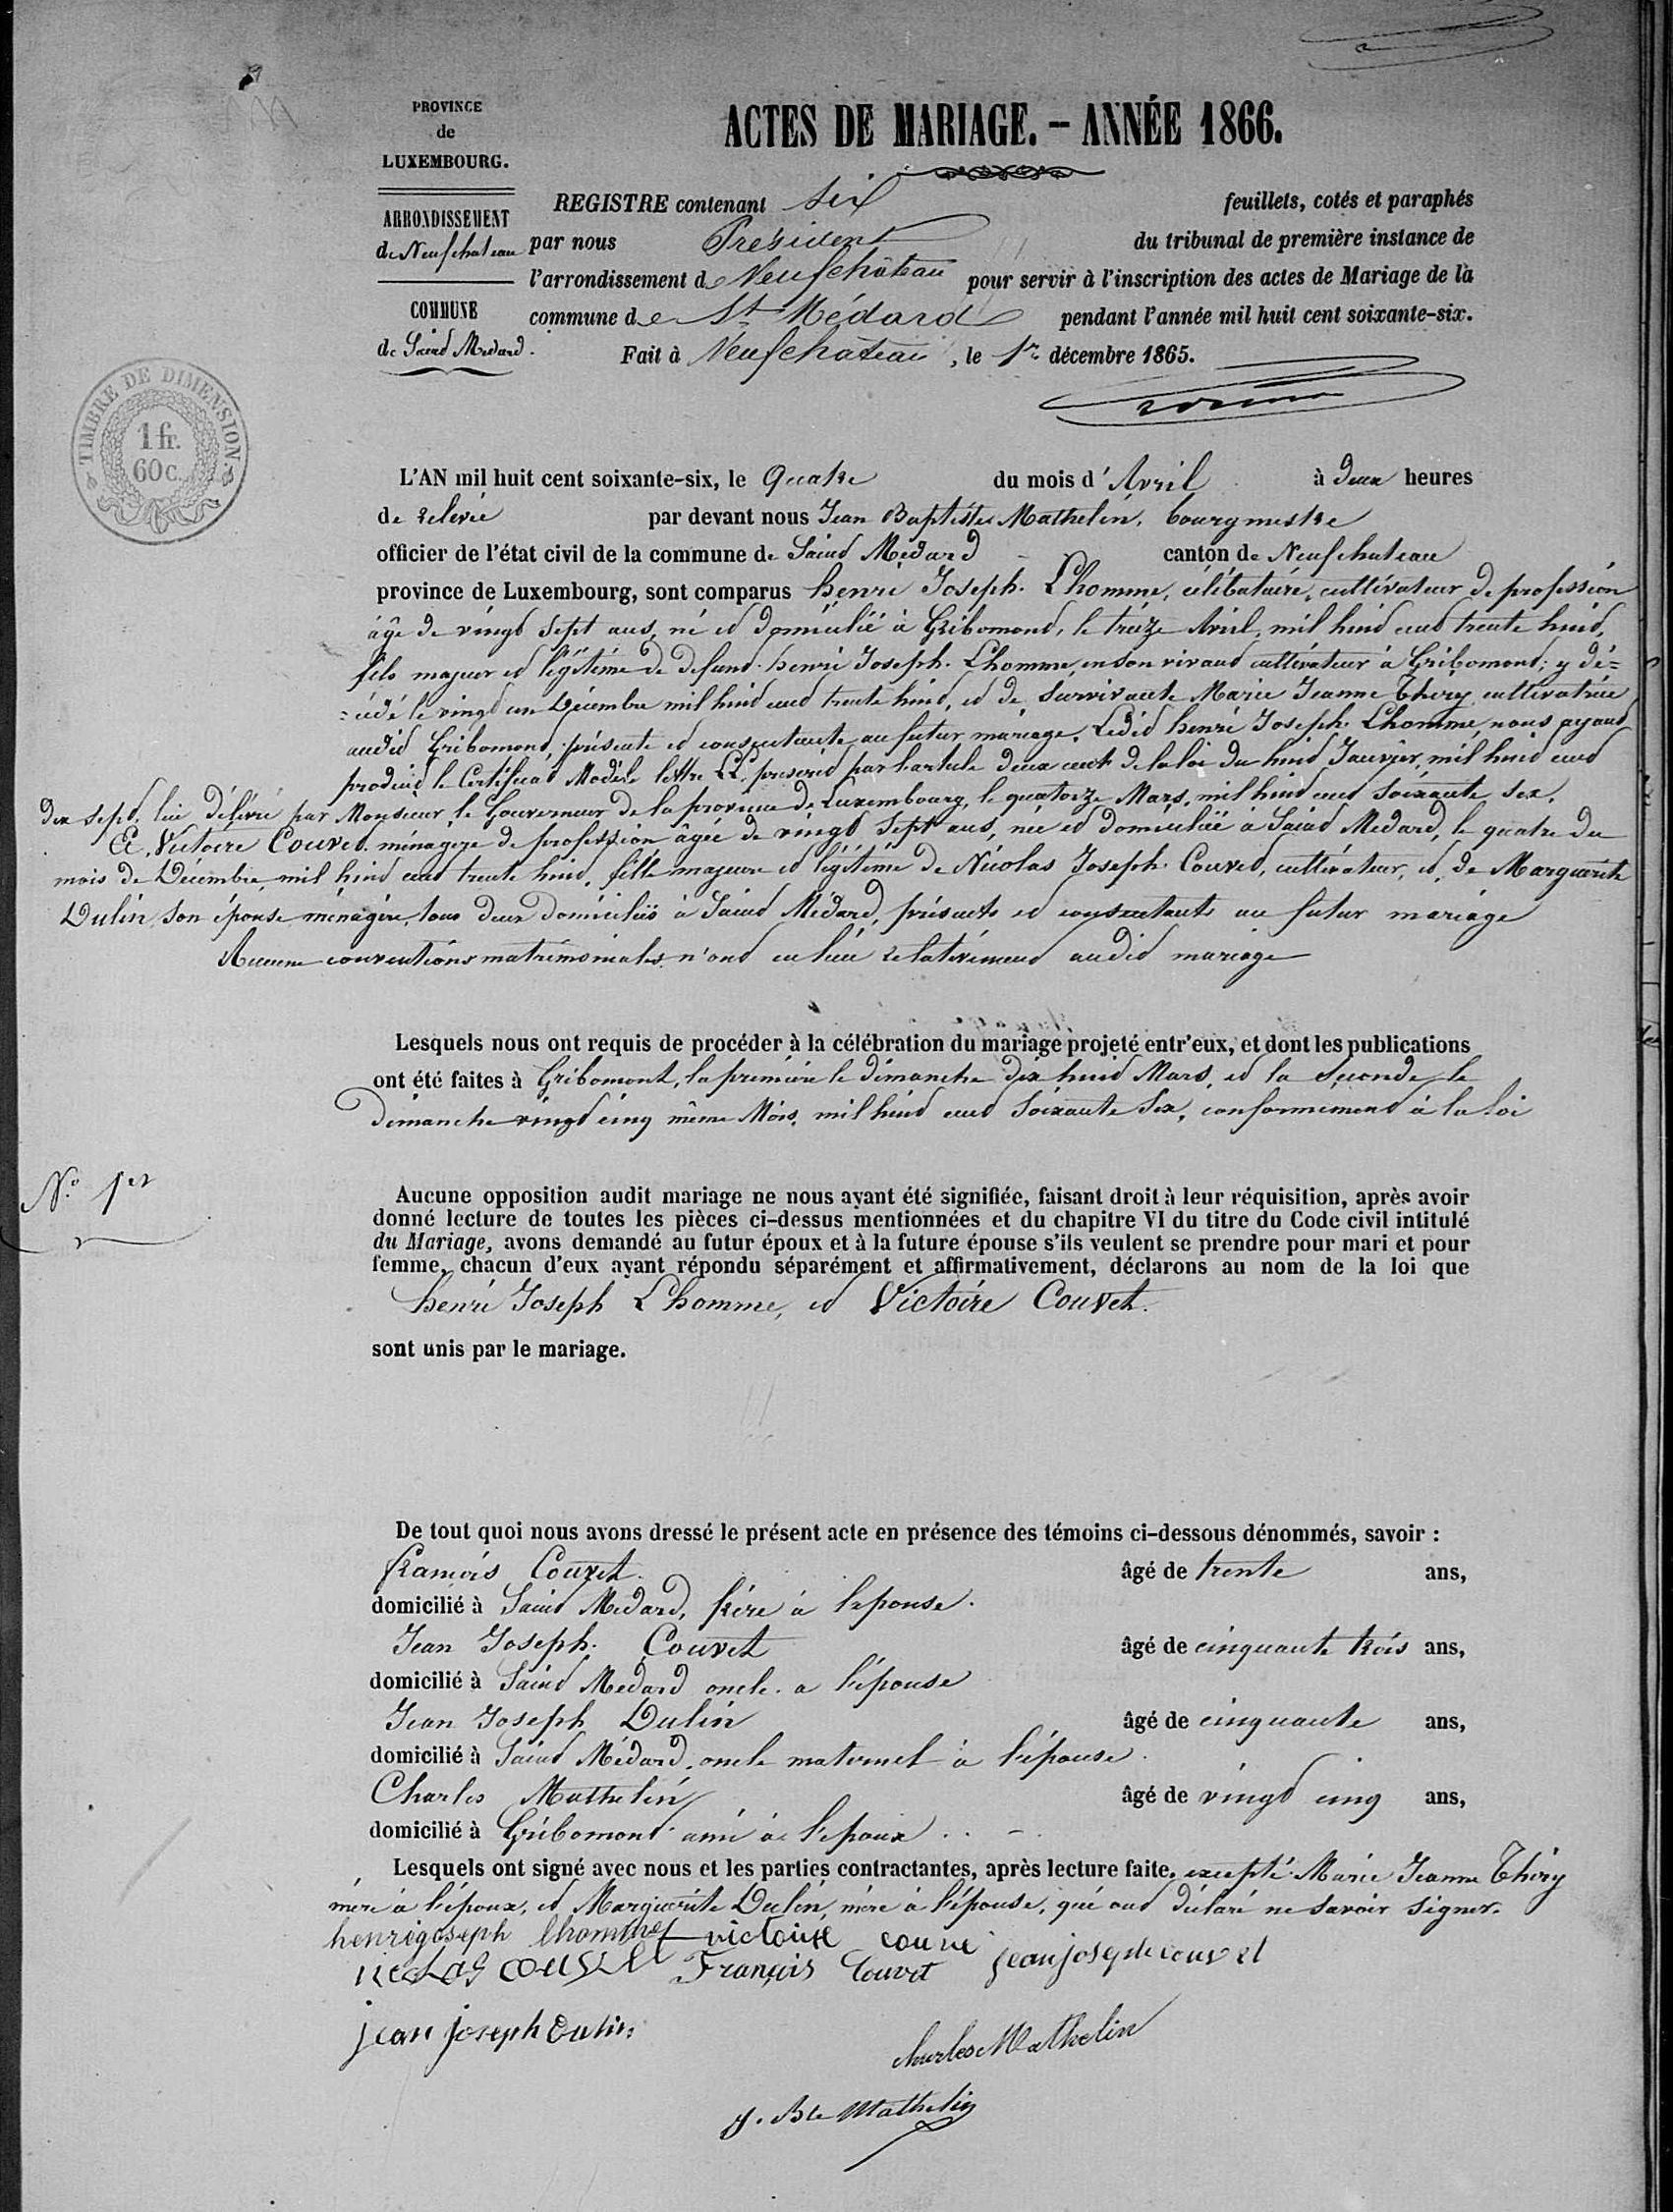 PROVINCE
de
LUXEMBOURG.
ARRONDISSEMENT
de Neufchateau
COMMUNE
de Saint Medard.
ACTES DE MARIAGE. – ANNÉE 1866.
REGISTRE contenant six feuillets, cotés et paraphés
par nous Président du tribunal de première instance de
l'arrondissement de Neufchâteau pour servir à l'inscription des actes de Mariage de la
commune de St Médard pendant l'année mil huit cent soixante-six.
Fait à Neufchateau, le 1er décembre 1865.
TIMBRE DE DIMENSION
1 fr.
60 c.
L'AN mil huit cent soixante-six, le Quatre du mois d'Avril à deux heures
de relevée par devant nous Jean Baptiste Mathelin, bourgmestre
officier de l'état civil de la commune de Saint Médard canton de Neufchateau
province de Luxembourg, sont comparus henri Joseph Lhomme, célibataire, cultivateur de profession
âgé de vingt sept ans, né et domicilié à Gribomont, le treize Avril, mil huit cent trente huit,
fils majeur et légitime de defunt henri Joseph Lhomme, en son vivant cultivateur à Gribomont, y dé=
=cédé le vingt un Décembre mil huit cent trente huit, et de survivante Marie Jeanne Thiry cultivatrice
audit Gribomont, présente et consentante au futur mariage. Ledit henri Joseph Lhomme, nous ayant
produit le Certificat Modèle lettre LL, prescrit par l'article deux cent de la loi du huit Janvier, mil huit cent
dix sept, lui délivré par Monsieur le Gouverneur de la province de Luxembourg, le quatorze Mars, mil huit cent soixante six.
Et Victoire Couvet ménagère de profession âgée de vingt sept ans, née et domiciliée a Saint Medard, le quatre du
mois de Décembre, mil huit cent trente huit, fille majeure et légitime de Nicolas Joseph Couvet, cultivateur, et de Marguerite
Dulin son épouse ménagère, tous deux domiciliés à Saint Médard, présents et consentants au futur mariage
Aucune conventions matrimoniales n'ont eu lieu relativement audit mariage
Lesquels nous ont requis de procéder à la célébration du mariage projeté entr'eux, et dont les publications
ont été faites à Gribomont, la première le dimanche dix huit Mars, et la seconde le
dimanche vingt cinq même Mois, mil huit cent soixante six, conformément à la loi
N° 1er
Aucune opposition audit mariage ne nous ayant été signifiée, faisant droit à leur réquisition, après avoir
donné lecture de toutes les pièces ci-dessus mentionnées et du chapitre VI du titre du Code civil intitulé
du Mariage, avons demandé au futur époux et à la future épouse s'ils veulent se prendre pour mari et pour
femme, chacun d'eux ayant répondu séparément et affirmativement, déclarons au nom de la loi que
henri Joseph Lhomme, et Victoire Couvet.
sont unis par le mariage.
De tout quoi nous avons dressé le présent acte en présence des témoins ci-dessous dénommés, savoir :
françois Couvet. âgé de trente ans,
domicilié à Saint Medard, frère à lepouse.
Jean Joseph Couvet âgé de cinquante trois ans,
domicilié à Saint Medard oncle a l'épouse
Jean Joseph Dulin âgé de cinquante ans,
domicilié à Saint Médard, oncle maternel à l'épouse.
Charles Mathelin âgé de vingt cinq ans,
domicilié à Gribomont ami à l'epoux
Lesquels ont signé avec nous et les parties contractantes, après lecture faite, excepté Marie Jeanne Thiry
mère à l'époux, et Marguerite Dulin, mère à l'épouse, qui ont déclaré ne savoir signer.
henrigoseph lhomme victoire couve
nicolas couvet François Couvet jean joseph couvet
jean joseph Dulin
charles Mathelin
J. Bte Mathelin